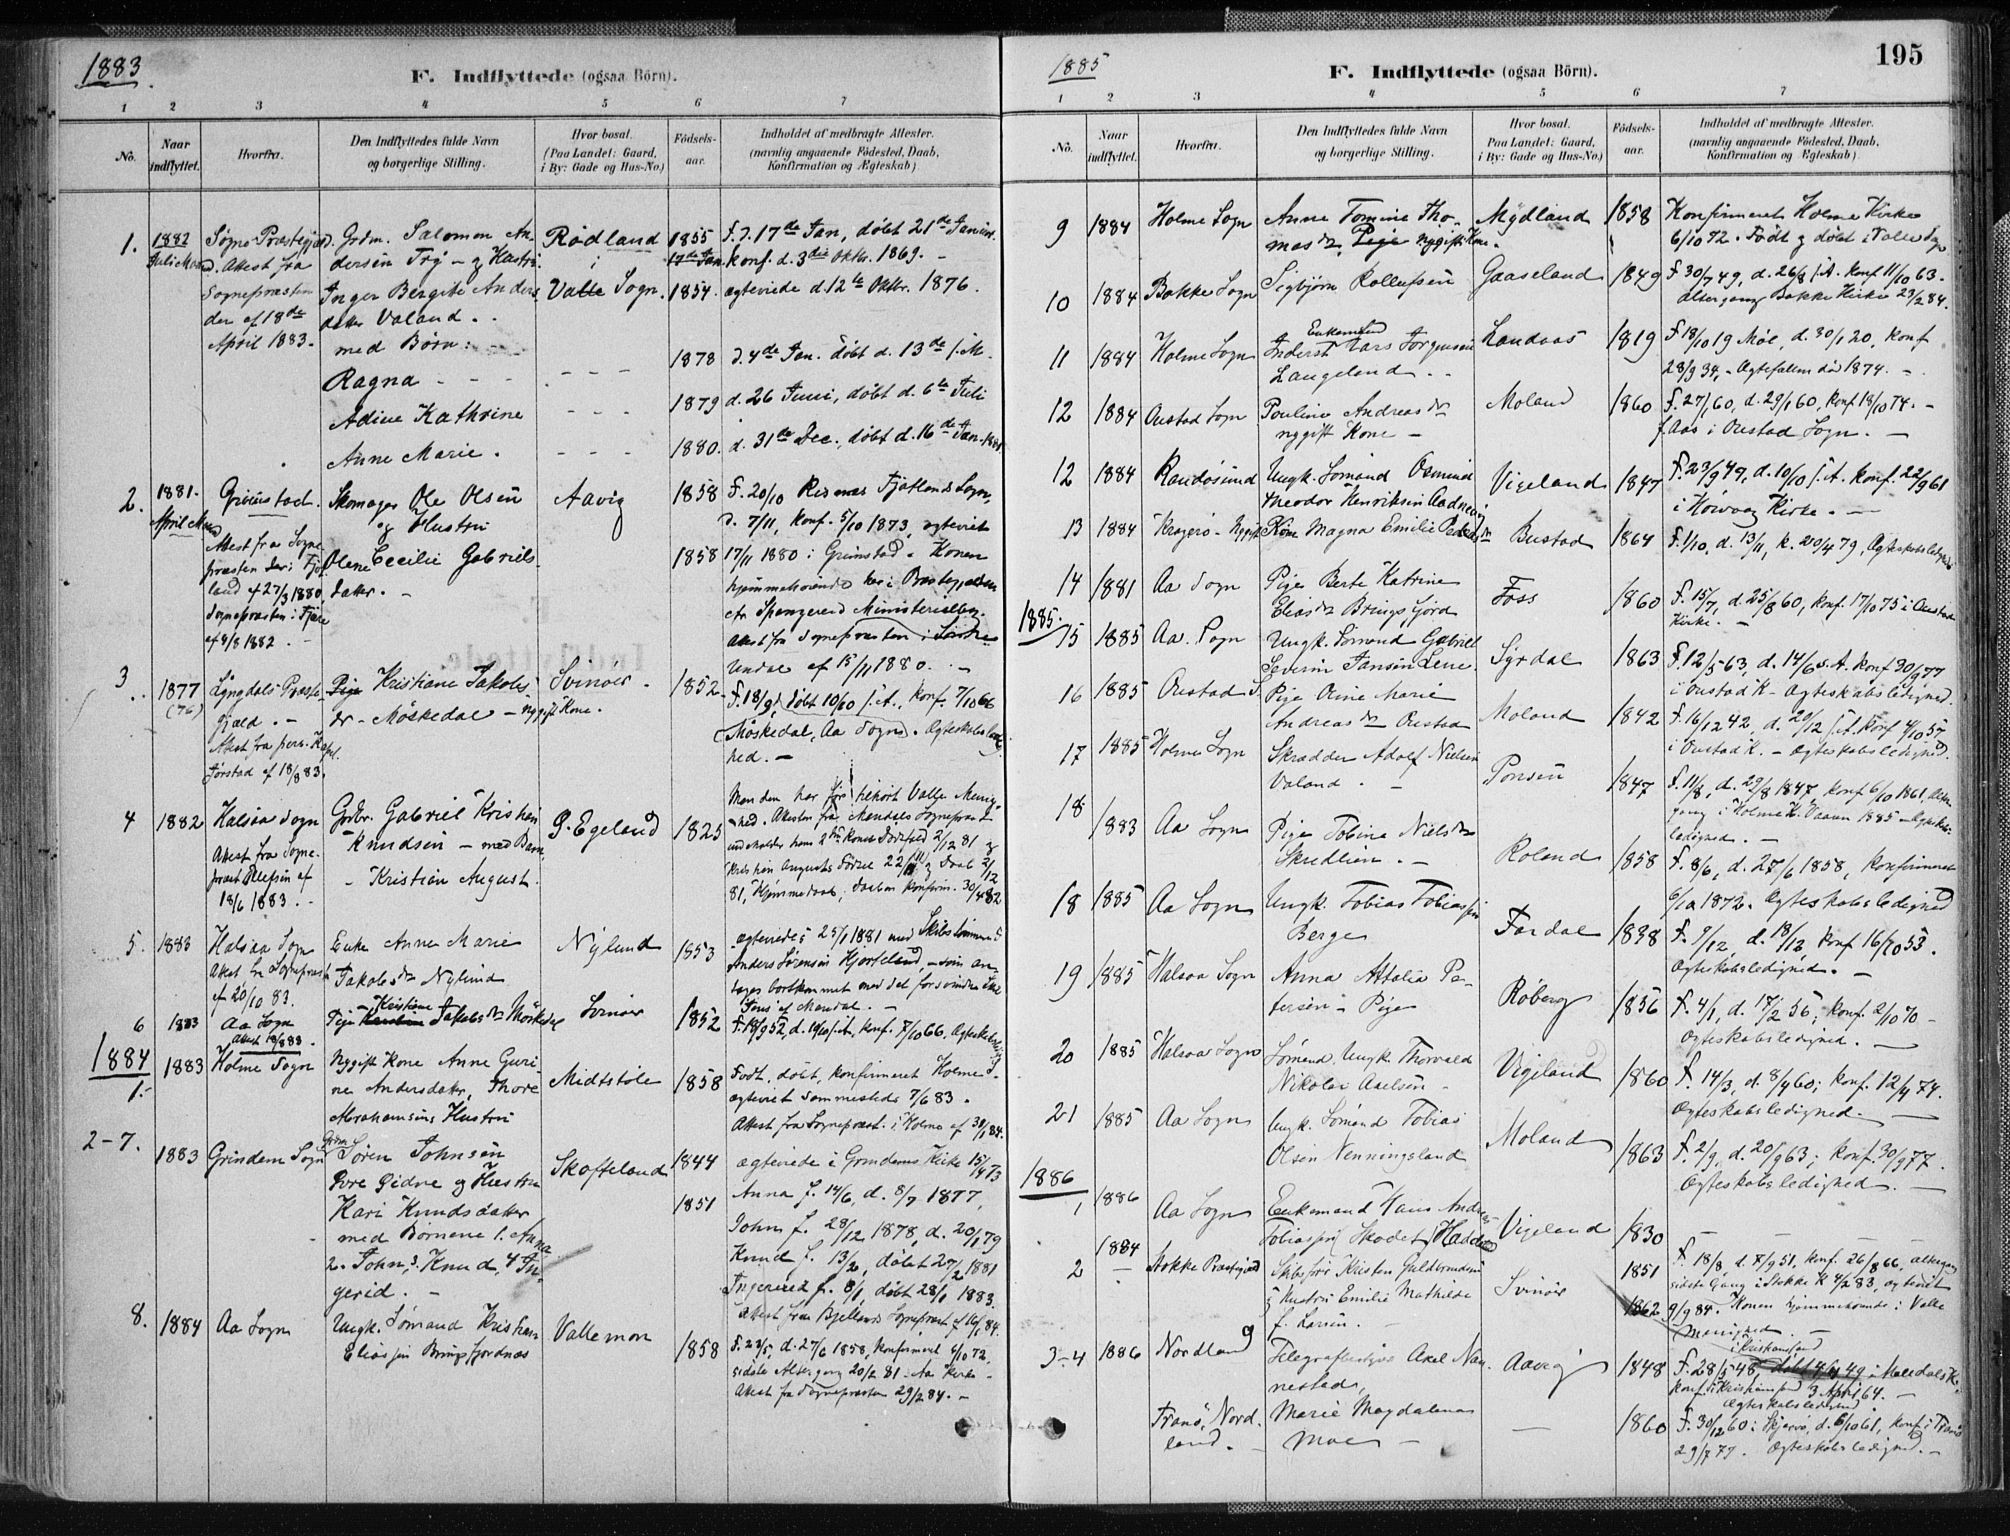 1883
F. Indflyttede (ogsaa Börn).
1 2 3 4 5 6 7
No.
Naar indflyttet.
Hvorfra.
Den Indflyttedes fulde Navn
og borgerlige Stilling.
Hvor bosat.
(Paa Landet: Gaard,
i By: Gade og Hus-No.)
Födsels-
aar.
Indholdet af medbragte Attester.
(navnlig angaaende Födested, Daab,
Konfirmation og Ægteskab)
1. 1882 Søgne Præstegjæld. Grdm. Salomon An- Rødland 1855 f. d. 17de Jan, døbt 21de
Attest fra dersen Try - og Hustru i 17de Jan. konf. d. 3die Oktbr. 1869. -
Sognepræsten Inger Bergite Anders Valle Sogn. 1854. ægteviede d 12te Oktbr. 1876.
der af 18de datter Valand.
April 1883. med Børn:
Ragna - - - 1878 d. 4de Jan. døbt d. 13de s. M.
Adine Kathrine - - - 1879 d. 26 Juni, døbt d. 6te Juli
Anne Marie. - - - 1880. d. 31te Dec. døbt d. 16de Jan. 1881
2. 1881. Grimstad. Skomager Ole Olsen Aavig 1858 F. 20/10 Fjotlands Sogn,
April og Hustru d. 7/11, konf. 5/10 1873, ægteviet
Attest fra Sogne- Olene Cecilie Gabriels- 1858 17/11 1880 i Grimstad. Konen
præsten datter. - hjemmehørende her i Præstegjældet
land af 27/3 1880
Sognepræsten i Fjære Attest fra Sognepræsten i Søndre
af 4/8 1882. Undal af 15/11 1880. -
3. 1877 Lyngdals Præste- Pige Kristiane Jakobs Svinøer - 1852 F. 18/9, døbt 10/10 s. A., konf. 7/10 66
(76) gjæld. - dr - Møskedal - nygift Kone. Møskedal, Aa Sogn. Ægteskabsledig-
Attest fra pers. Kapel. hed. -
Jørstad af 18/8 83.
4 1882 Halsaa Sogn Grdbr. Gabriel Kristian G. Egeland 1825 Manden har før tilhørt Valle Menig-
Attest fra Sogne- Knudsen - med Barn hed. Attesten fra Mandals Sognepræst
præst Ellefsen af - Kristian August.
18/6 1883. -
5. 1883 Halsaa Sogn Enke Anne Marie Nylund 1853 ægteviedes 25/1 1881 med Skibstømmermand
Attest fra Sognepræst Jakobsdr Nylund Anders Sørensen Hjorteland, - som an-
af 20/10 83. tages bortkommet med det forsvundne Skib
6 1883 Aa Sogn Pige Kristiane Jakobsdr Møskedal Svinøer 1852 F. 18/9 52, d. 10/10 s. A., konf. 7/10 66. Ægteskabsledig
Attest 18/8 83.
1884
1. 1883 Holme Sogn Nygift Kone Anne Guri- Midtstøle 1858 Født, døbt, konfirmeret Holme S.
ne Andersdatter, Thore ægteviet sammesteds 7/6 83.
Abrahamsens Hustru Attest fra Sognepræst. i Holme af 30/1 84.
2-7. 1883 Grindem Sogn Søren Johnsen Skoffeland 1844 ægteviede i Grindems Kirke 15/4 73
Øvre Eidne og Hustru Anna f. 14/6, d. 8/7 1877,
Kari Knudsdatter 1851 John f. 28/12 1878, d. 20/1 79
med Børnene 1. Anna Knud f. 13/2, døbt 27/2 1881
2. John, 3. Knud, 4 In- Ingerid f. 8/1, døbt 28/1 1883.
gerid. - Attest fra Bjellands Sognepræst af 16/1 84.
8. 1884 Aa Sogn Ungk. Sømand Kristian Vallemon 1858 F. 23/5, d. 27/6 1858, konfirmeret 6/10 72,
Eliassen Bringsfjordnes sidste Altergang 20/2 81 i Aa Kirke -
Attest fra Sognepræsten 29/2 84. -
1885
195
F. Indflyttede (ogsaa Börn).
1 2 3 4 5 6 7
No.
Naar indflyttet.
Hvorfra.
Den Indflyttedes fulde Navn
og borgerlige Stilling.
Hvor bosat.
Paa Landet: Gaard,
i By: Gade og Hus-No.)
Födsels-
aar.
Indholdet af medbragte Attester.
(navnlig angaaende Födested, Daab,
Konfirmation og Ægteskab)
9 1884 Holme Sogn Anne Tomine Tho- Mydland 1858 Konfirmeret Holme Kirke
masdr, Pige nygift Kone. 6/10 72. Født og døbt i Valle Sogn
10 1884 Bakke Sogn Sigbjørn Rollefsen Gaaseland 1849 F. 30/7 49, d. 26/8 s. A. konf 11/10 63.
altergang Bakke Kirke 23/2 84.
11 1884 Holme Sogn Enkemand Inderst Lars Jørgensen Landaas 1819 F. 18/10 19 Møe, d. 30/1 20, konf
Langeland 28/9 34, - Ægtefællen død 1874. -
12 1884 Oustad Sogn Pouline Andreasdr Moland 1860 f. 27/1 60, d. 29/1 60, konf 18/10 74. -
nygift Kone - f. Aas i Oustad Sogn. -
12 1884 Randøsund Ungk. Sømand Osmund Vigeland 1847 F. 23/9 47, d. 10/10 s. A. konf. 22/9 61
Theodor Henriksen i Høivaag Kirke. -
13 1884 Kragerø - Nygift Kone Magna Emilie Pedersdr Bustad 1864 F. 1/10, d. 13/11, k. 20/4 79, Ægteskabsledighed
14 1881 Aa Sogn Pige Berte Katrine Foss 1860 F. 15/7, d. 25/8 60, konf. 17/10 75 i Oustad
Eliasdr Bringsfjord Kirke. -
1885.
15 1885 Aa Sogn Ungk. Sømand Gabriel Syrdal 1863 F. 12/5 63, d. 14/6 s. A. konf 30/9 77
Severin Jansen Lene i Oustad K - Ægteskabsledighed.
16 1885 Oustad S. Pige Oline Marie Moland 1842 F. 16/12 42, d. 29/12 s. A. konf 4/10 57
Andreasdr Oustad i Oustad K. - Ægteskabsledighed.
17 1885 Holme Sogn Skrædder Adolf Nielsen 1847 F. 11/8, d. 29/8 1847, konf 6/10 1861, alter-
Valand. - gang i Holme K. Vaaren 1885 - Ægteskabs-
ledighed. -
18 1883 Aa Sogn Pige Tobine Nielsdr Roland 1858 F. 8/6, d. 27/6 1858, konfirmeret
Skredlien. - 6/10 1872. Ægteskabsledighed
18 1885 Aa Sogn Ungk. Tobias Tobiassen Fardal 1838 F. 9/12, d. 18/12, konf 16/10 53.
Berge Ægteskabsledighed. -
19 1885 Halsaa Sogn Anna Attalia Pe- Røberg 1856 F. 4/1, d. 17/2 56; konf. 2/10 70 -
tersen - Pige Ægteskabsledighed. -
20 1885 Halsaa Sogn Sømand Ungk. Thorvald Vigeland 1860 F. 14/3, d. 8/4 60; konf. 12/4 74.
Nikolai Axelsen - Ægteskabsledighed. -
21 1885 Aa Sogn Ungk. Sømand Tobias Moland 1863 F. 2/9, d. 20/9 63; konf. 30/9 77.
Olsen Nenningsland Ægteskabsledighed. -
1886
1 1886 Aa Sogn Enkemand Hans Andreas Vigeland 1830 -
Tobiassen
2 1884 Stokke Præstegjæld Skibsfører Kristen Guldbrandsen Svinøer 1851 F. 18/8, d. 7/9 51, konf. 26/8 66, altergang
& Hustru Emilie Mathilde sidste Gang i Stokke K 4/2 83, ægteviet
f. Larsen. - 1862 9/9 84. Konen hjemmehørende i Valle
Menighed. -
3-4 1886 Nordland Telegrafbestyrer Axel Nan- Aavig 1848 F. 28/5 48, i Kristianssand
nestad, konf. i Kristianssand 3 April 64. -
Ægteskabsledighed.
Tranø, Nord- Marie Magdalena - 1860 F. 30/12 60 i Skjervø, d. 6/10 61, konf. i Tranø
land. - Moe - 29/7 77. Ægteskabsledighed. -